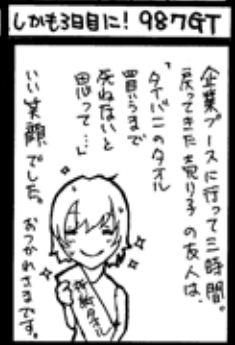 しかも3日目に! 987GT
企業ブースに行って三時間。
戻ってきた売り子の友人は、
「タイバニのタオル
買うまで
死ねないと
思って…」
いい笑顔でした。おつかれさまです。
タオル